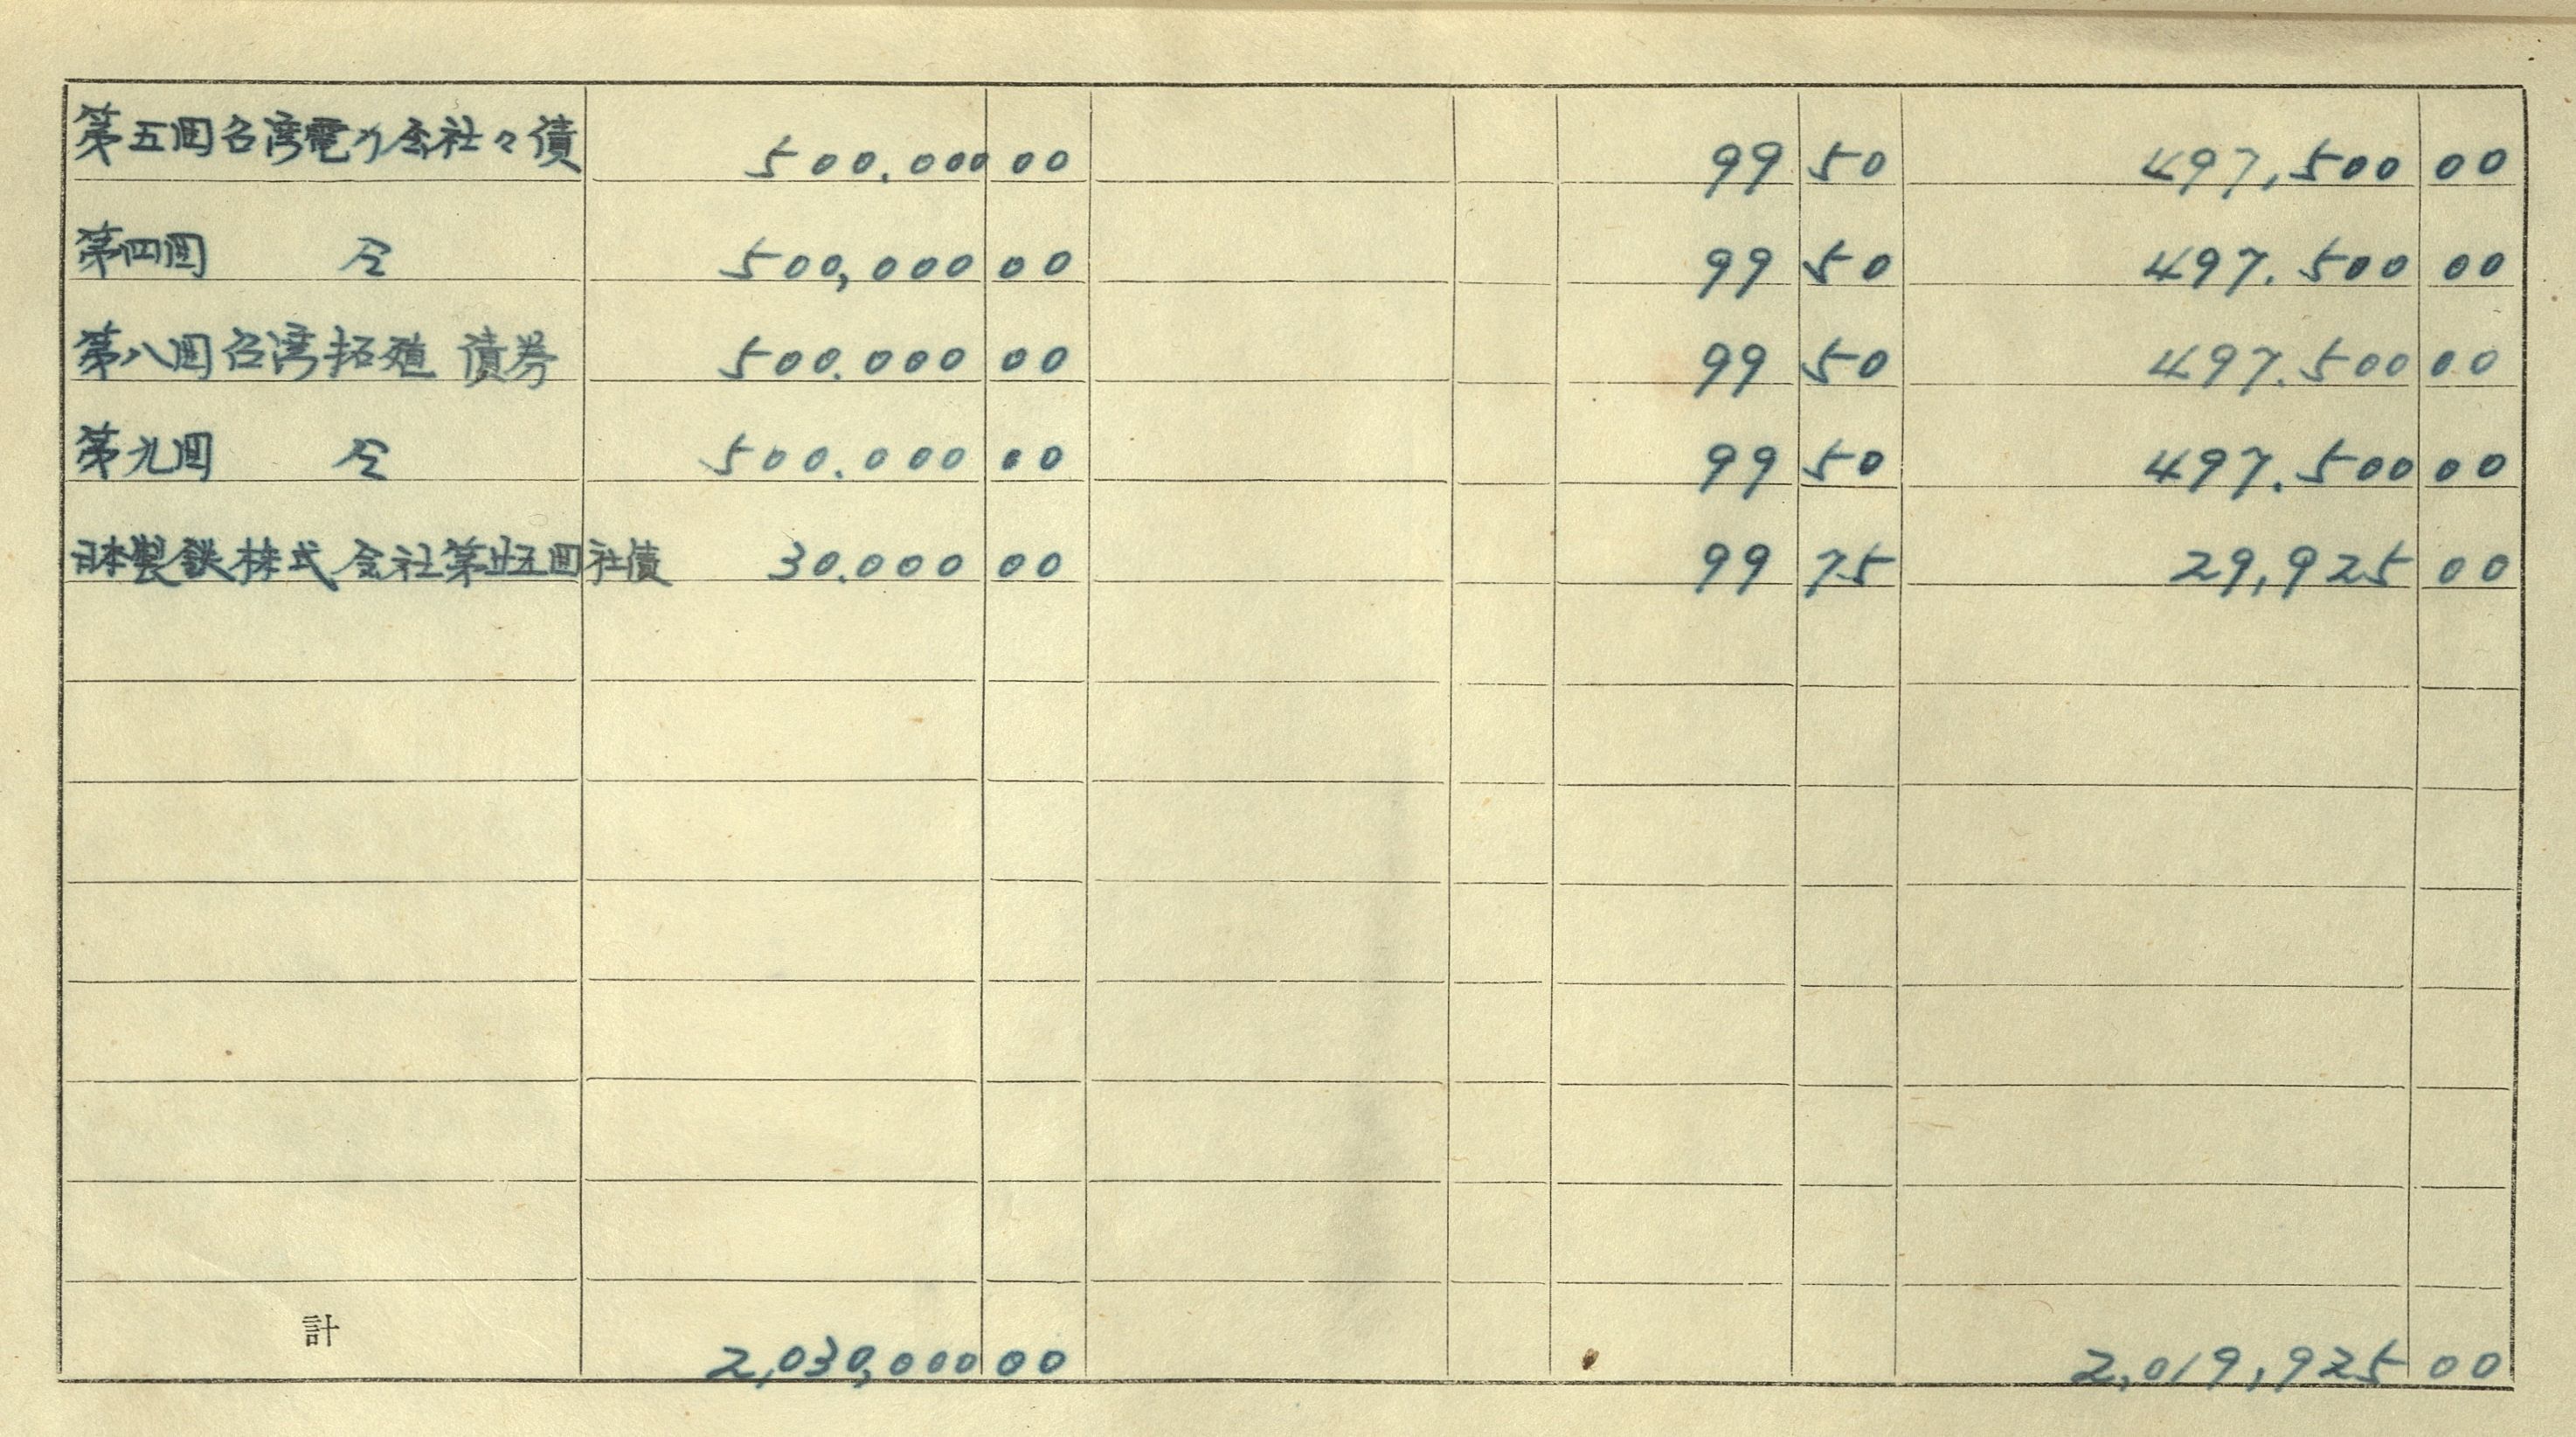 第五回台湾電力会社々債 500.000 00 99 50 497,500 00
第四回 仝 500,000 00 99 50 497.500 00
第八回台湾拓殖債券 500.000 00 99 50 497.500 00
第九回 仝 500.000 00 99 50 497.500 00
日本製鉄株式会社第廿五回社債 30.000 00 99 75 29,925 00
計 2,030,000 00 2,019,925 00